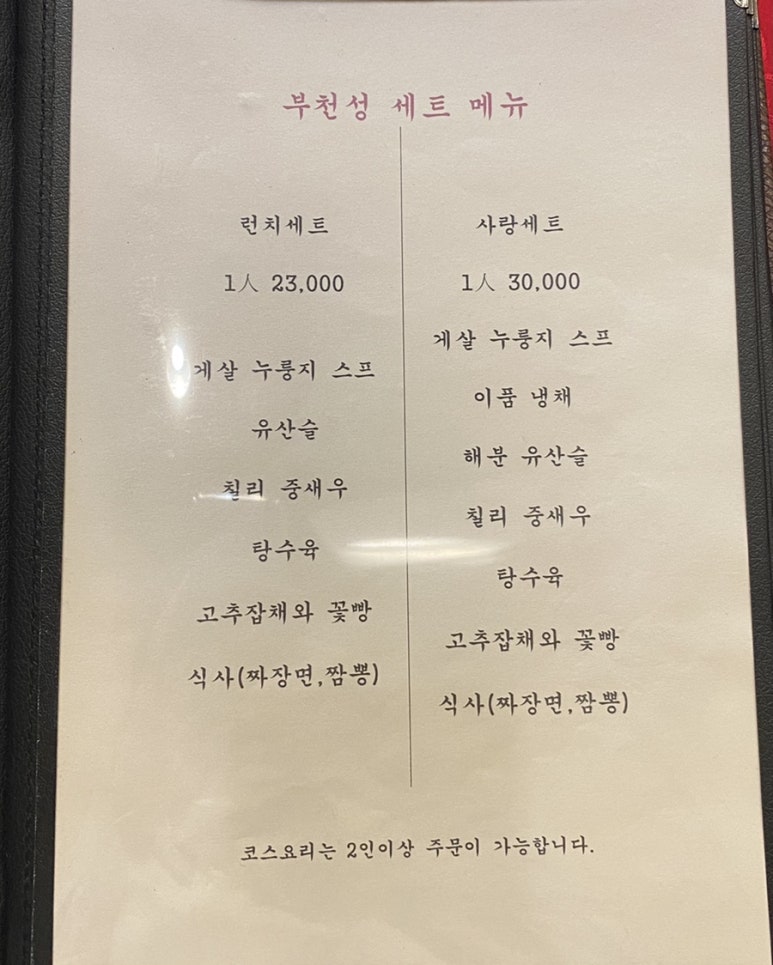 부천성 세트 메뉴
런치세트
1人 23,000
게살 누룽지 스프
유산슬
칠리 중새우
탕수육
고추잡채와 꽃빵
식사(짜장면,짬뽕)
사랑세트
1人 30,000
게살 누룽지 스프
이품 냉채
해분 유산슬
칠리 중새우
탕수육
고추잡채와 꽃빵
식사(짜장면,짬뽕)
코스요리는 2인이상 주문이 가능합니다.